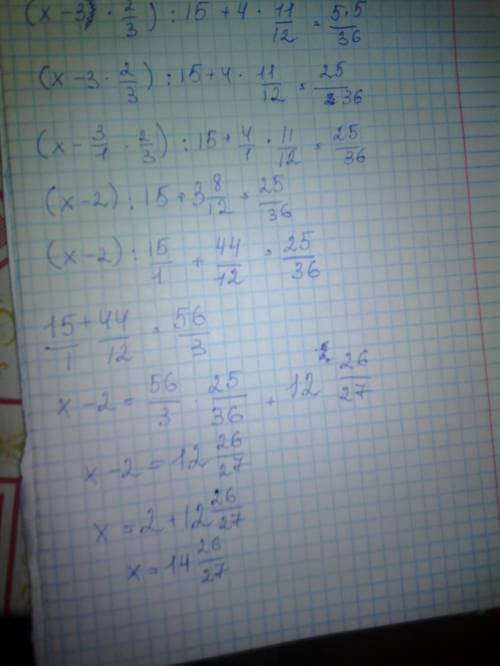 (x - 3 · 2/3) : 15 + 4 · 11/12 = 5·5/36
(x - 3 · 2/3) : 15 + 4 · 11/12 = 25/36
(x - 3/1 · 2/3) : 15 + 4/1 · 11/12 = 25/36
(x - 2) : 15 + 3 8/12 = 25/36
(x - 2) : 15/1 + 44/12 = 25/36
15/1 + 44/12 = 56/3
x - 2 = 56/3 · 25/36 = 12 26/27
x - 2 = 12 26/27
x = 2 + 12 26/27
x = 14 26/27